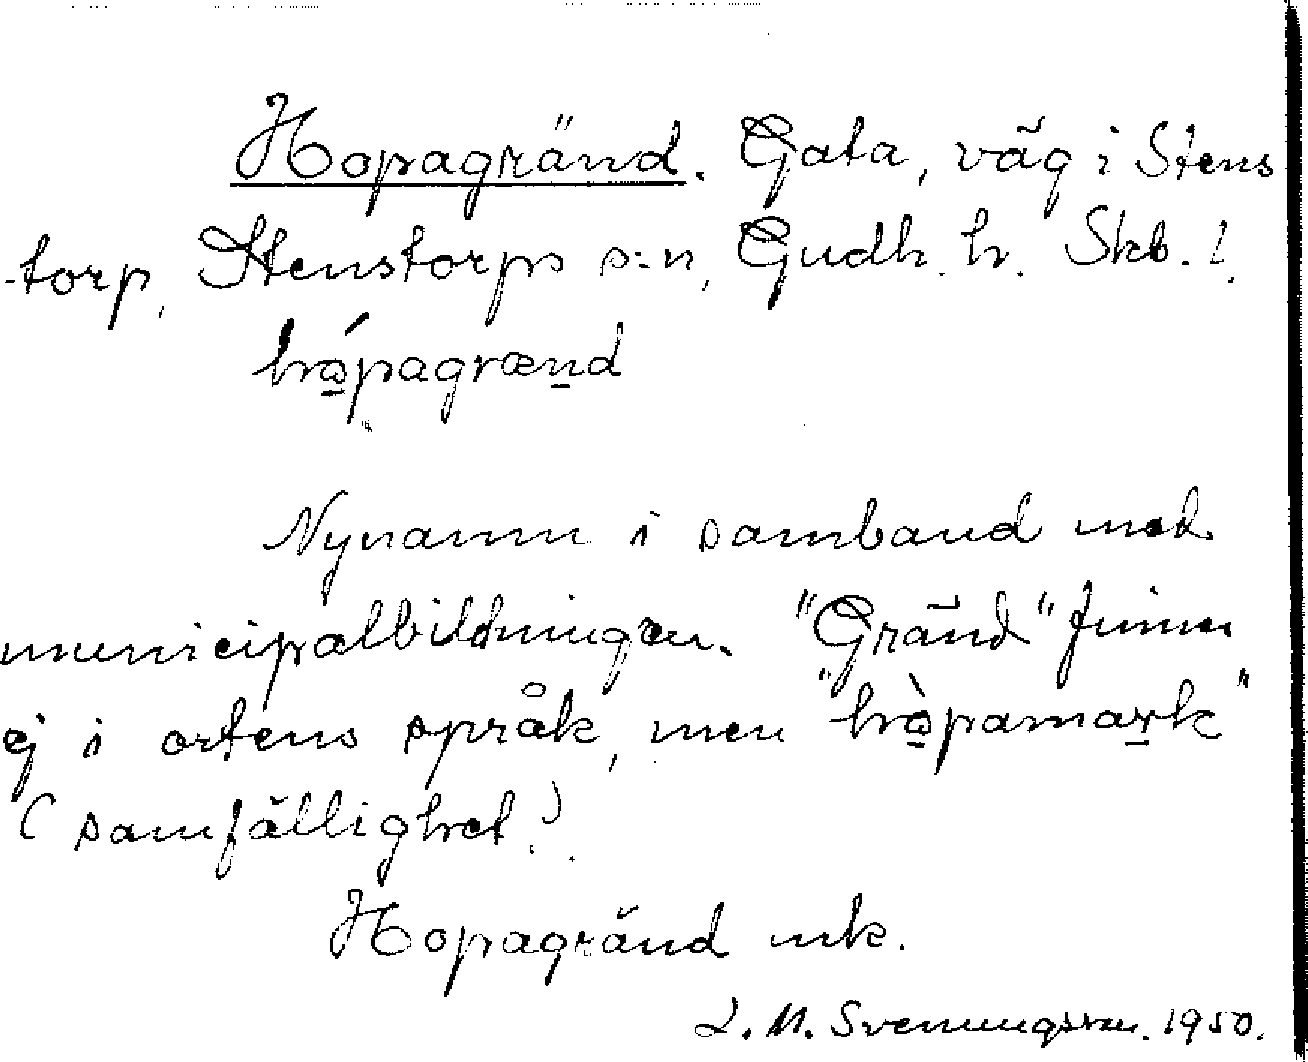 Hopagränd. Gata, väg i Stens
-torp, Stenstorps s:n, Gudh. h. Skb. l.
hó̱pagræṉd
Nynamn i samband med
municipalbildningen. "Gränd" finns
ej i ortens språk, men "hò̱pamaṟk"
(samfällighet.).
Hopagränd mk.
L. M. Svenungsson. 1950.